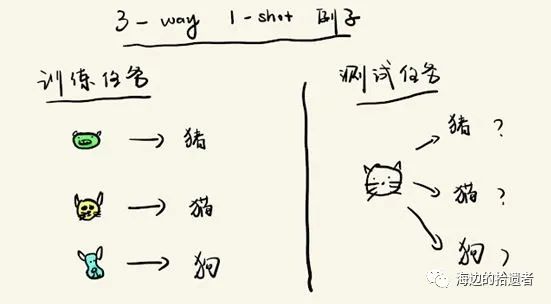 3-way 1-shot 例子
训练任务
猪
猫
狗
测试任务
猪?
猫?
狗?
海边的拾遗者